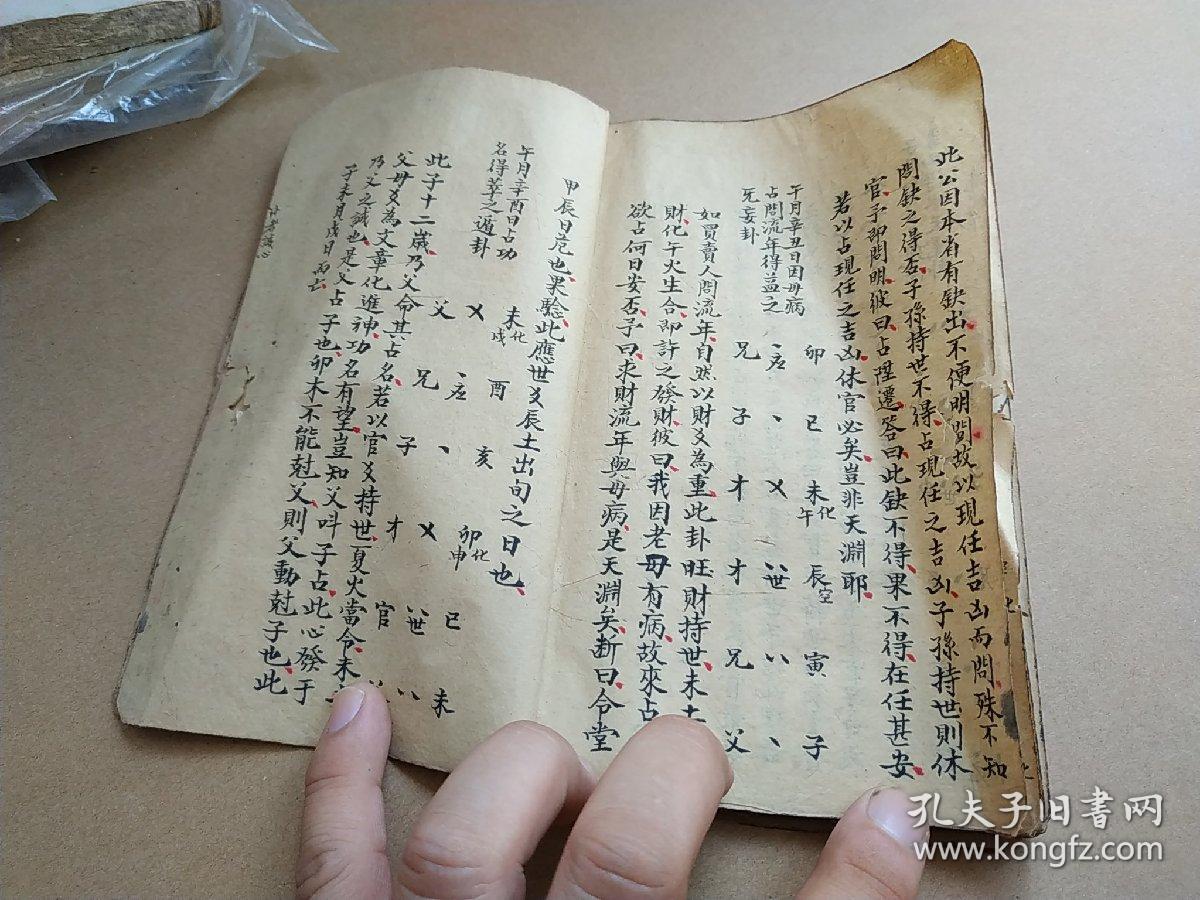 此公因本省有缺出不便明問故以現任吉凶而問殊不知
問缺之得否子孫持世不得占現任之吉凶子孫持世則休
官予即問明彼曰占陞遷答曰此缺不得果不得在任甚安
若以占現任之吉凶休官必矣豈非天淵耶
午月辛丑日因母病
占問流年得益之
旡妄卦
卯 巳 未化午 辰空 寅 子
應 世
兄 子 才 才 兄 父
如買賣人問流年自然以財爻為重此卦旺財持世未土
財化午火生合即許之發財彼曰我因老母有病故來占
欲占何日安否予曰求財流年與母病是天淵矣断曰令堂
甲辰日危也果驗此應世爻辰土出旬之日也
午月辛酉日占功
名得萃之遁卦
未化戌 酉 亥 卯化申 巳 未
應 世
父 兄 子 才 官
此子十二歲乃父命其占名若以官爻持世夏火當令未
父母爻為文章化進神功名有望豈知父叫子占此心發于
乃父之誠也是父占子也卯木不能尅父則父動尅子也此
子未月戊日而亡
孔夫子旧书网
www.kongfz.com